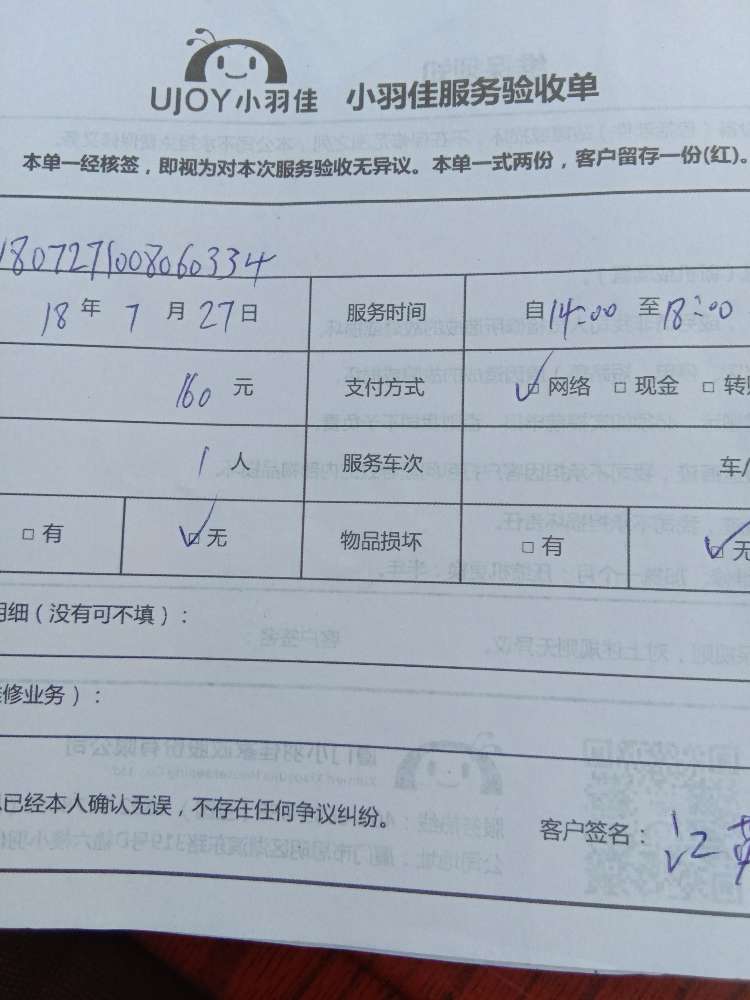 UJOY小羽佳 小羽佳服务验收单
本单一经核签，即视为对本次服务验收无异议。本单一式两份，客户留存一份(红)。
1807271008060334
18 年 7 月 27 日 服务时间 自14:00 至18:00
160 元 支付方式 网络 现金 转账
1 人 服务车次 车/
有 无 物品损坏 有 无
明细（没有可不填）：
修业务）：
已经本人确认无误，不存在任何争议纠纷。
客户签名：江